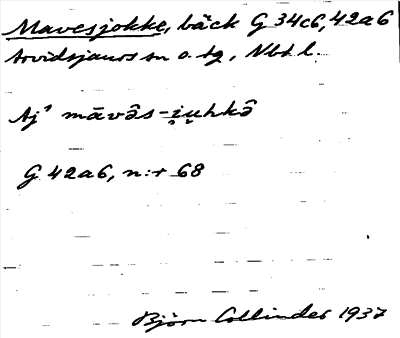 Mavesjokke, bäck G 34c6, 42a6
Arvidsjaurs sn o. tg, Nbt l.
Aj¹ māvə̂s-i̯u̯hkə̂
G 42a6, n:r 68
Björn Collinder 1937